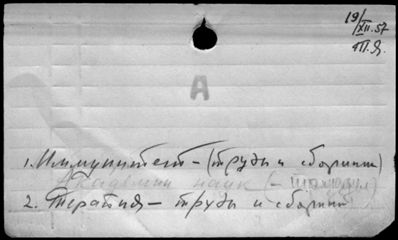 19/XII.57
А
1. Иммунитет – (труды и сборники)
Академии наук (–
2. Терапия – труды и сборники